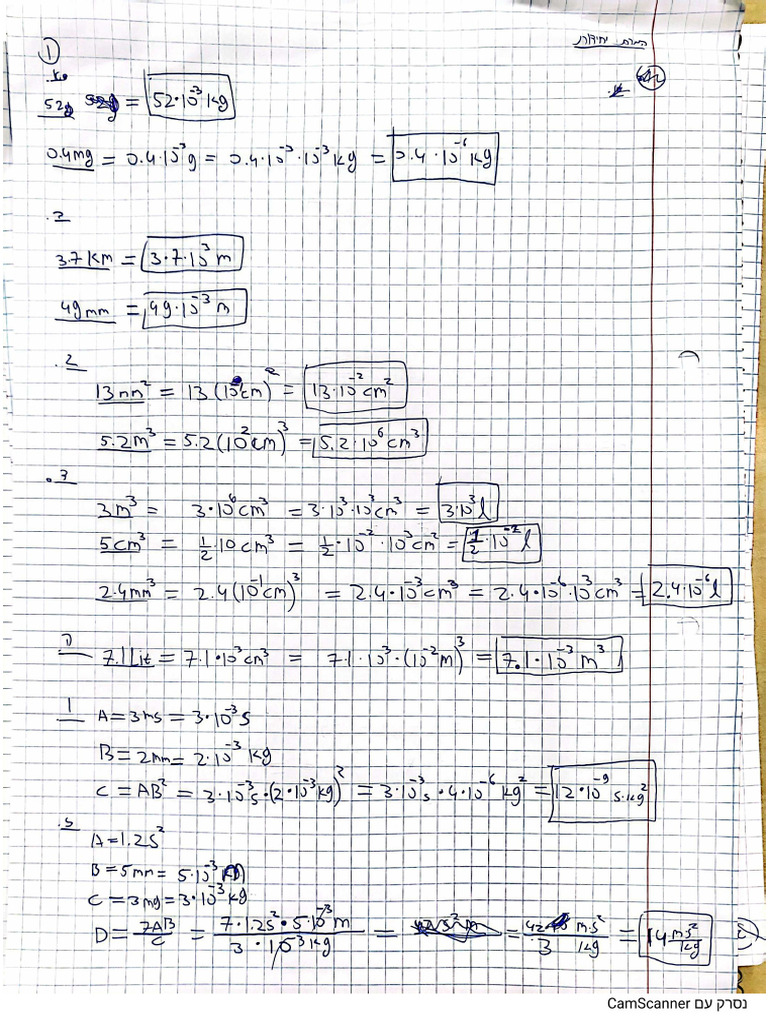 המרת יחידות
①
.א
52g = 52·10⁻³ kg
0.4mg = 0.4·10⁻³g = 0.4·10⁻³·10⁻³ kg = 0.4·10⁻⁶ kg
.ב
3.7 km = 3.7·10³ m
49mm = 49·10⁻³ m
.ג
13mm² = 13(10⁻¹cm)² = 13·10⁻² cm²
5.2m³ = 5.2(10²cm)³ = 5.2·10⁶ cm³
.ד
3m³ = 3·10⁶cm³ = 3·10³·10³cm³ = 3·10³ l
5cm³ = ½·10cm³ = ½·10⁻²·10³cm³ = ½·10⁻² l
2.4mm³ = 2.4(10⁻¹cm)³ = 2.4·10⁻³cm³ = 2.4·10⁻⁶·10³cm³ = 2.4·10⁻⁶ l
ה 7.1Lit = 7.1·10³cm³ = 7.1·10³·(10⁻²m)³ = 7.1·10⁻³ m³
ו A=3ms=3·10⁻³s
B=2mm=2·10⁻³ kg
C=AB²=3·10⁻³s·(2·10⁻³kg)²=3·10⁻³s·4·10⁻⁶kg²=12·10⁻⁹ s·kg²
.ז
A=1.2s²
B=5mm=5·10⁻³
C=3mg=3·10⁻³kg
D=7AB/C = 7·1.2s²·5·10⁻³m / 3·10⁻³kg = = 42/3 m·s²/kg = 14 ms²/kg
נסרק עם CamScanner